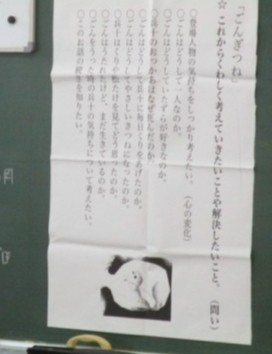 「ごんぎつね」
☆ これからくわしく考えていきたいことや解決したいこと。（問い）
○登場人物の気持ちをしっかり考えたい。（心の変化）
○ごんはどうして一人なのか。
○ごんはどうしていたずらが好きなのか。
○兵十のおっかあはなぜ死んだのか。
○ごんはどうして兵十に毎日くりをあげたのか。
○ごんはどうしてやさしいきつねになったのか。
○兵十はくりや松たけを見てどう思ったのか。
○ごんはうたれたけど、まだ生きているのか。
○ごんをうった時の兵十の気持ちについて考えたい。
○このお話の続きを知りたい。